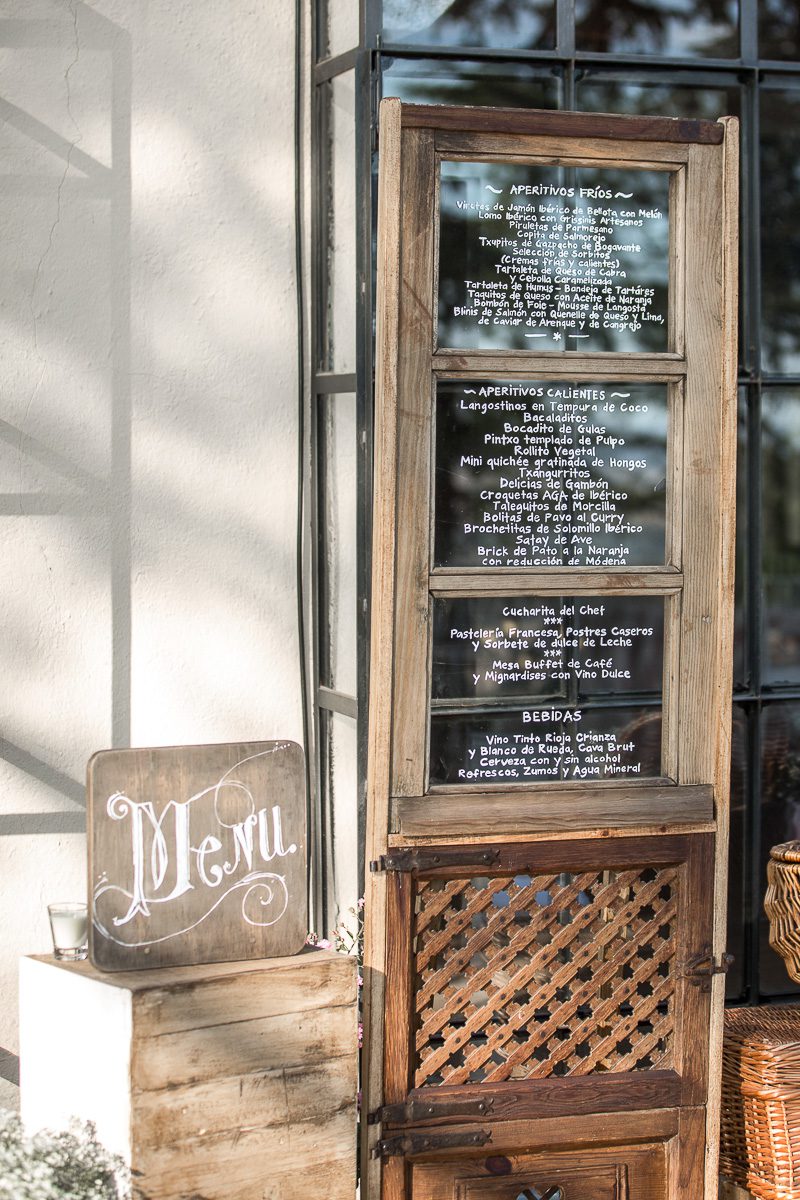 ~ APERITIVOS FRÍOS ~
Virutas de Jamón Ibérico de Bellota con Melón
Lomo Ibérico con Grissinis Artesanos
Piruletas de Parmesano
Copita de Salmorejo
Txupitos de Gazpacho de Bogavante
Selección de Sorbitos
(Cremas frías y calientes)
Tartaleta de Queso de Cabra
y Cebolla Caramelizada
Tartaleta de Humus - Bandeja de Tartáres
Taquitos de Queso con Aceite de Naranja
Bombón de Foie - Mousse de Langosta
Blinis de Salmón con Quenelle de Queso y Lima,
de Caviar de Arenque y de Cangrejo
— * —
~ APERITIVOS CALIENTES ~
Langostinos en Tempura de Coco
Bacaladitos
Bocadito de Gulas
Pintxo templado de Pulpo
Rollito Vegetal
Mini quichée gratinada de Hongos
Txangurritos
Delicias de Gambón
Croquetas AGA de Ibérico
Taleguitos de Morcilla
Bolitas de Pavo al Curry
Brochetitas de Solomillo Ibérico
Satay de Ave
Brick de Pato a la Naranja
con reducción de Módena
Cucharita del Chef
***
Pastelería Francesa, Postres Caseros
y Sorbete de dulce de Leche
***
Mesa Buffet de Café
y Mignardises con Vino Dulce
BEBIDAS
Vino Tinto Rioja Crianza
y Blanco de Rueda, Cava Brut
Cerveza con y sin alcohol
Refrescos, Zumos y Agua Mineral
Menu.